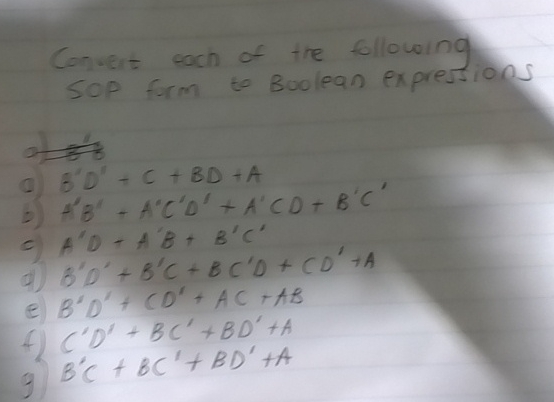 Convert each of the following
SOP form to Boolean expressions
a) B'D' + C + BD + A
b) A'B' + A'C'D' + A'CD + B'C'
c) A'D + A'B + B'C'
d) B'D' + B'C + BC'D + CD' + A
e) B'D' + CD' + AC + AB
f) C'D' + BC' + BD' + A
g) B'C + BC' + BD' + A